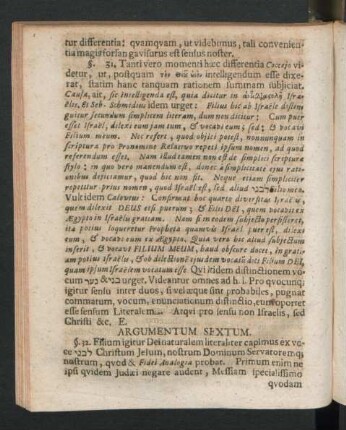 tur differentia: qvamqvam, ut videbimus, tali convenien-
tia magis forſan gaviſurus eſt ſenſus noſter.
§. 31. Tanti vero momenti hæc differentia Coccejo vi-
detur, ut, poſtquam intelligendum eſſe dixe-
rat, ſtatim hanc tanquam rationem ſummam ſubjiciat.
Cauſa, ait, ſic Intelligenda eſt, quia dicitur in Iſra-
ëlis, & Seb. Schmidius idem urget: Filius hic ab Iſraële diſtin-
guitur ſecundum ſimplicem literam, dum neu dicitur; Cum puer
eſſet Iſraël, dilexi eum jam tum, & vocabi eum; ſed; & vocavi
Filium meum. Nec refert, quod objici poteſt, nonnunquam in
ſcriptura pro Pronomine Relativo repeti ipſum nomen, ad quod
referendum eſſet. Nam illud tamen non eſt de ſimplici ſcripturæ
ſtylo; in quo vero manendum eſt, donec a ſimplicitate ejus ratio-
nibus dejiciamur, quod hic non fit. Neque etiam ſimpliciter
repetitur prius nomen, quod Iſraël eſt, ſed aliud לבני Filio meo.
Vult idem Calovius: Confirmat hoc quarto diverſitas Iſraëlis,
quem dilexit DEUS eſſi puerum; & Filii DEI, quem vocavit ex
Ægypto in Iſraëlis gratiam. Nam ſi in eodem ſubjecto perſiſteret,
ita potius loqueretur Propheta quamvis Iſraël puer eſt, dilexi
eum, & vocavi eum ex Ægypto. Quia vero hic aliud ſubjectum
inſerit, & vocavi FILIUM MEUM, haud obſcure docet, in grati-
am potius Iſraëlis, & ob dilectionem ejusdem vocatum dici Filium DEI,
quam ipſum Iſraëlem vocatum eſſe. Qvi itidem diſtinctionem vo-
cum נער & בני urget. Videantur omnes ad h. l. Pro qvocunq;
igitur ſenſu inter duos, ſive æque ſint probabiles, pugnat
commatum, vocum, enunciationum diſtinctio, eum oportet
eſſe ſenſum Literalem... Atqvi pro ſenſu non Iſraëlis, ſed
Chriſti &c. E.
ARGUMENTUM SEXTUM.
§. 32. Filium igitur Dei naturalem literaliter capimus ex vo-
ce לבני Chriſtum Jeſum, noſtrum Dominum Servatoremq;
noſtrum, qvod S. Fidei Analogia probat. Primum enim ne
ipſi qvidem Judæi negare audent, Meſſiam ſpecialiſſimo
qvodam